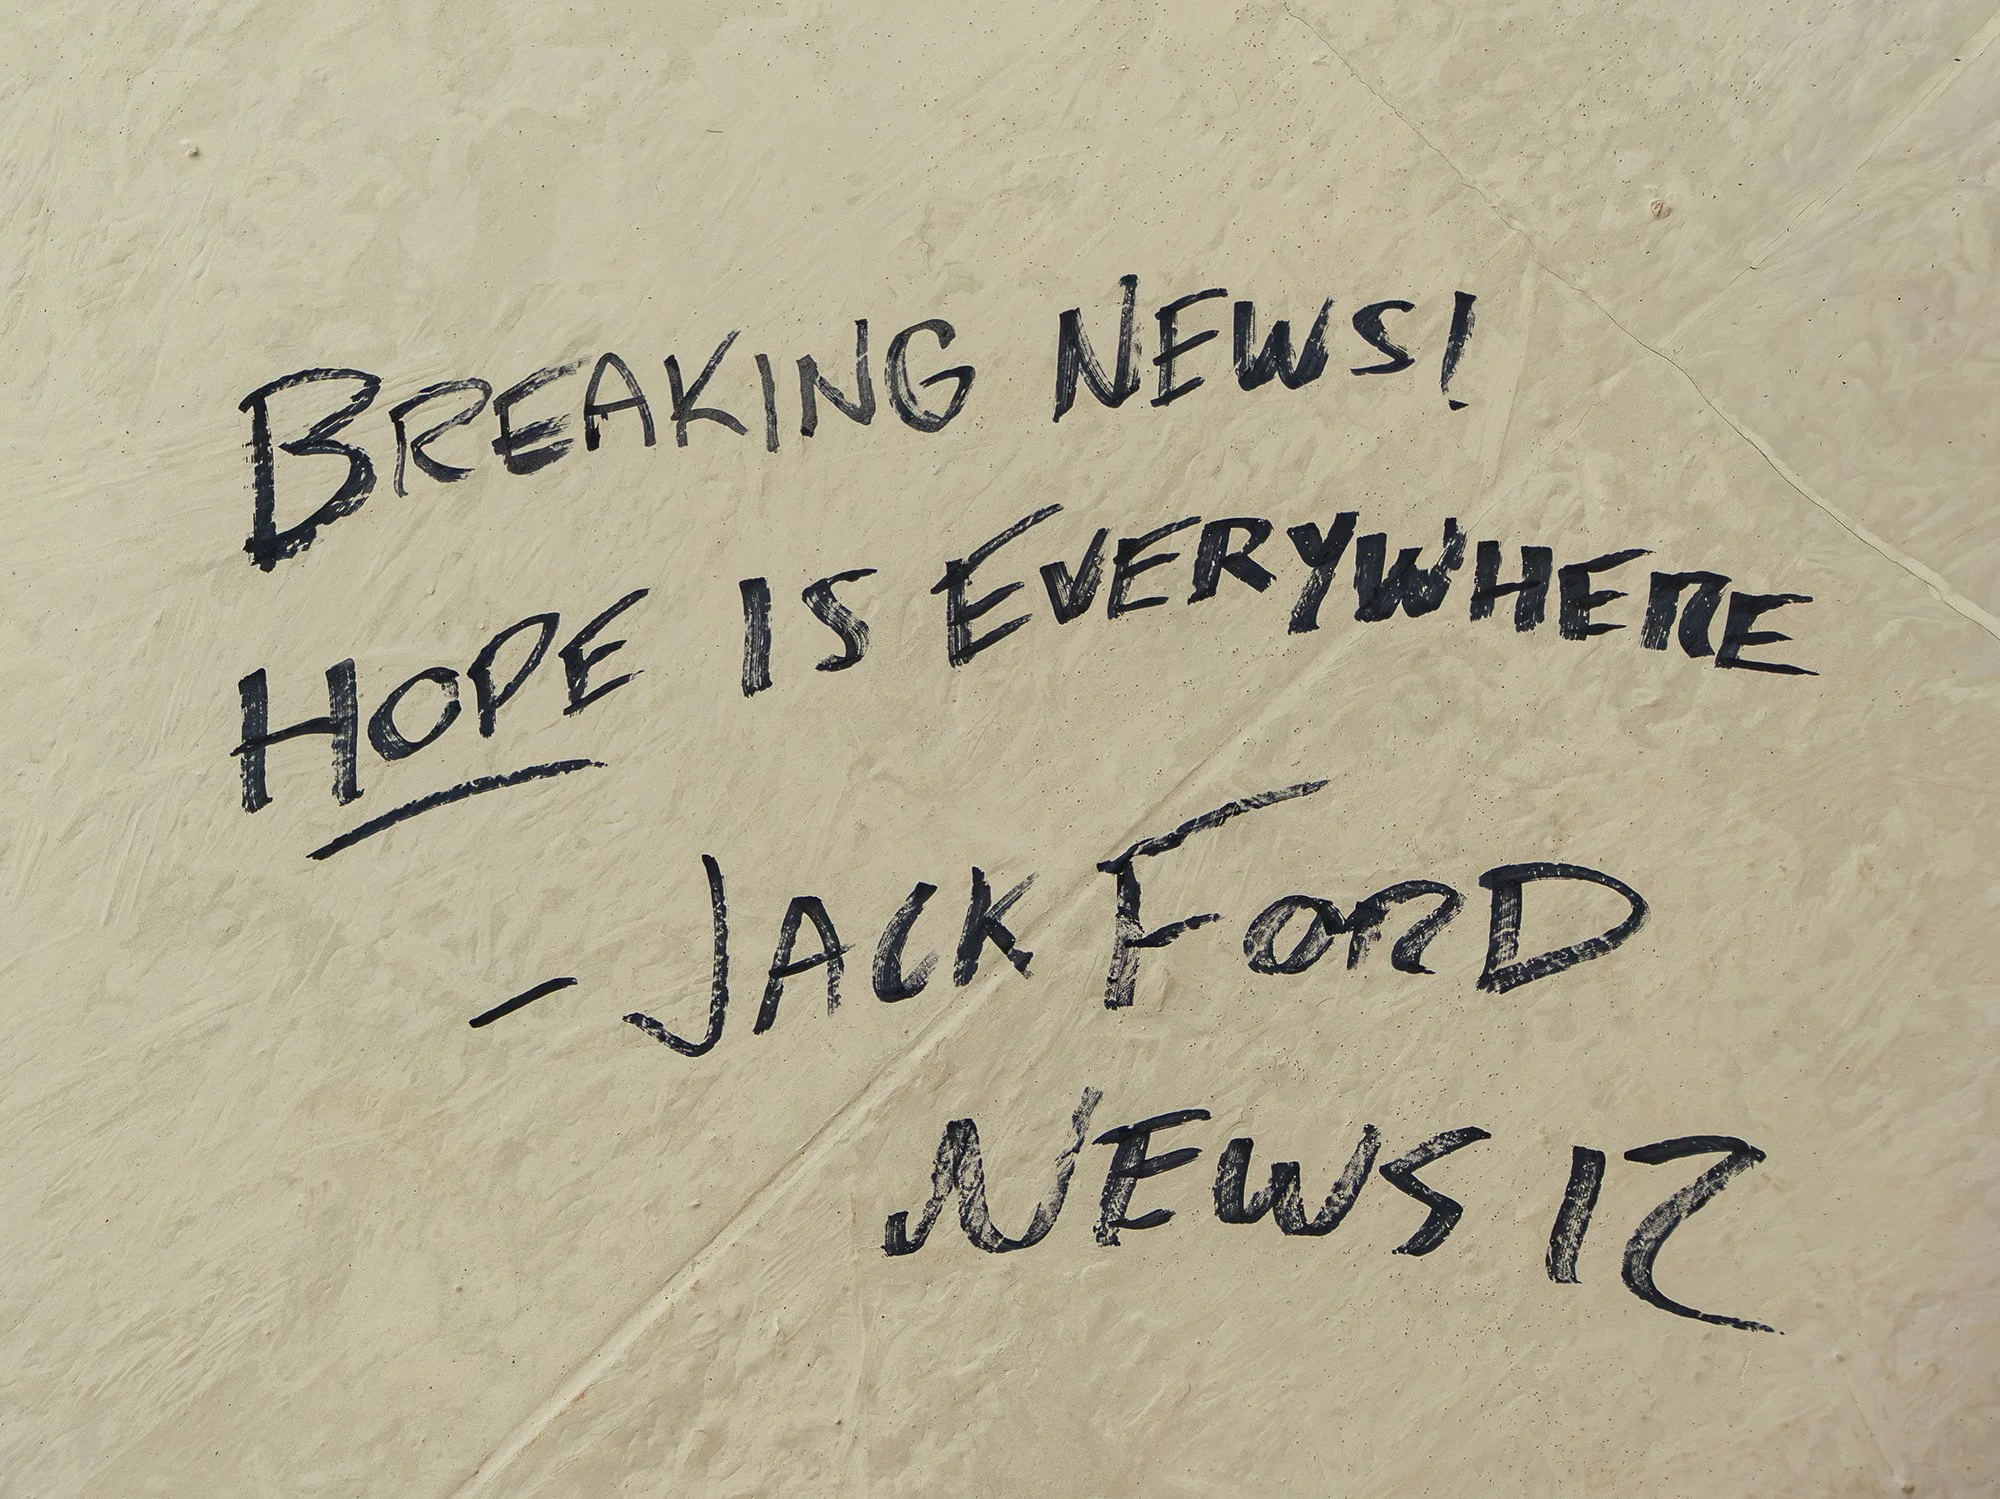 BREAKING NEWS!
HOPE IS EVERYWHERE
- JACK FORD
NEWS 12